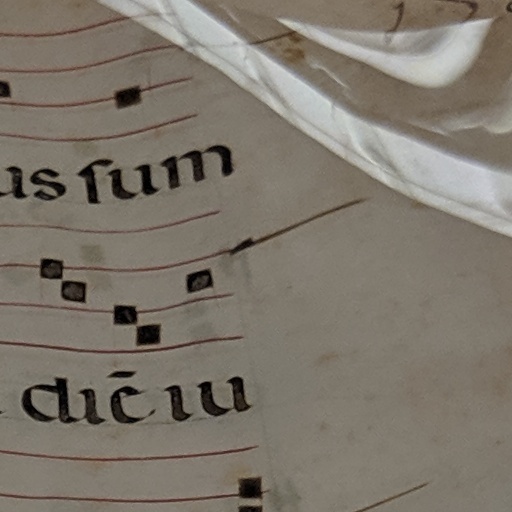 us ſum
dic̄ iu